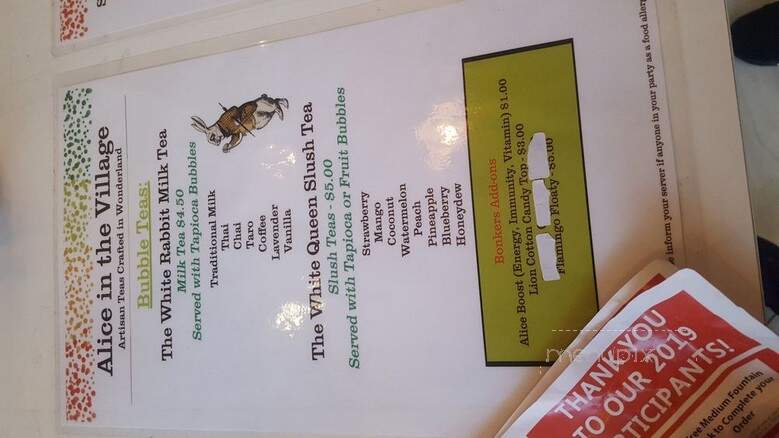 Alice in the Village
Artisan Teas Crafted in Wonderland
Bubble Teas:
The White Rabbit Milk Tea
Milk Tea $4.50
Served with Tapioca Bubbles
Traditional Milk
Thai
Chai
Taro
Coffee
Lavender
Vanilla
The White Queen Slush Tea
Slush Teas - $5.00
Served with Tapioca or Fruit Bubbles
Strawberry
Mango
Coconut
Watermelon
Peach
Pineapple
Blueberry
Honeydew
Bonkers Add-ons
Alice Boost (Energy, Immunity, Vitamin) $1.00
Lion Cotton Candy Top - $3.00
Flamingo Floaty - $5.00
inform your server if anyone in your party as a food
THANK YOU
TO OUR 2019
TICIPANTS!
Free Medium Fountain
to Complete your
Order
menupix